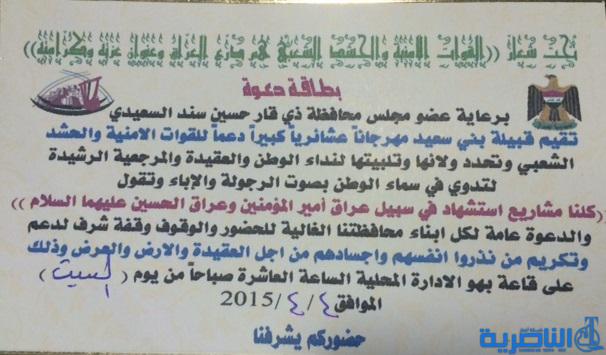 تحت شعار ((القوات الامنية والحشد الشعبي هم درع العراق وعنوان عزته وكرامته))
بطاقة دعوة
برعاية عضو مجلس محافظة ذي قار حسين سند السعيدي
تقيم قبيلة بني سعيد مهرجاناً عشائرياً كبيراً دعماً للقوات الامنية والحشد
الشعبي وتجدد ولائها وتلبيتها لنداء الوطن والعقيدة والمرجعية الرشيدة
لتدوي في سماء الوطن بصوت الرجولة والإباء وتقول
((كلنا مشاريع استشهاد في سبيل عراق أمير المؤمنين وعراق الحسين عليهما السلام))
والدعوة عامة لكل ابناء محافظتنا الغالية للحضور والوقوف وقفة شرف لدعم
وتكريم من نذروا انفسهم واجسادهم من اجل العقيدة والارض والعرض وذلك
على قاعة بهو الادارة المحلية الساعة العاشرة صباحاً من يوم (السبت)
الموافق ٤/٤/2015
حضوركم يشرفنا
الناصرية